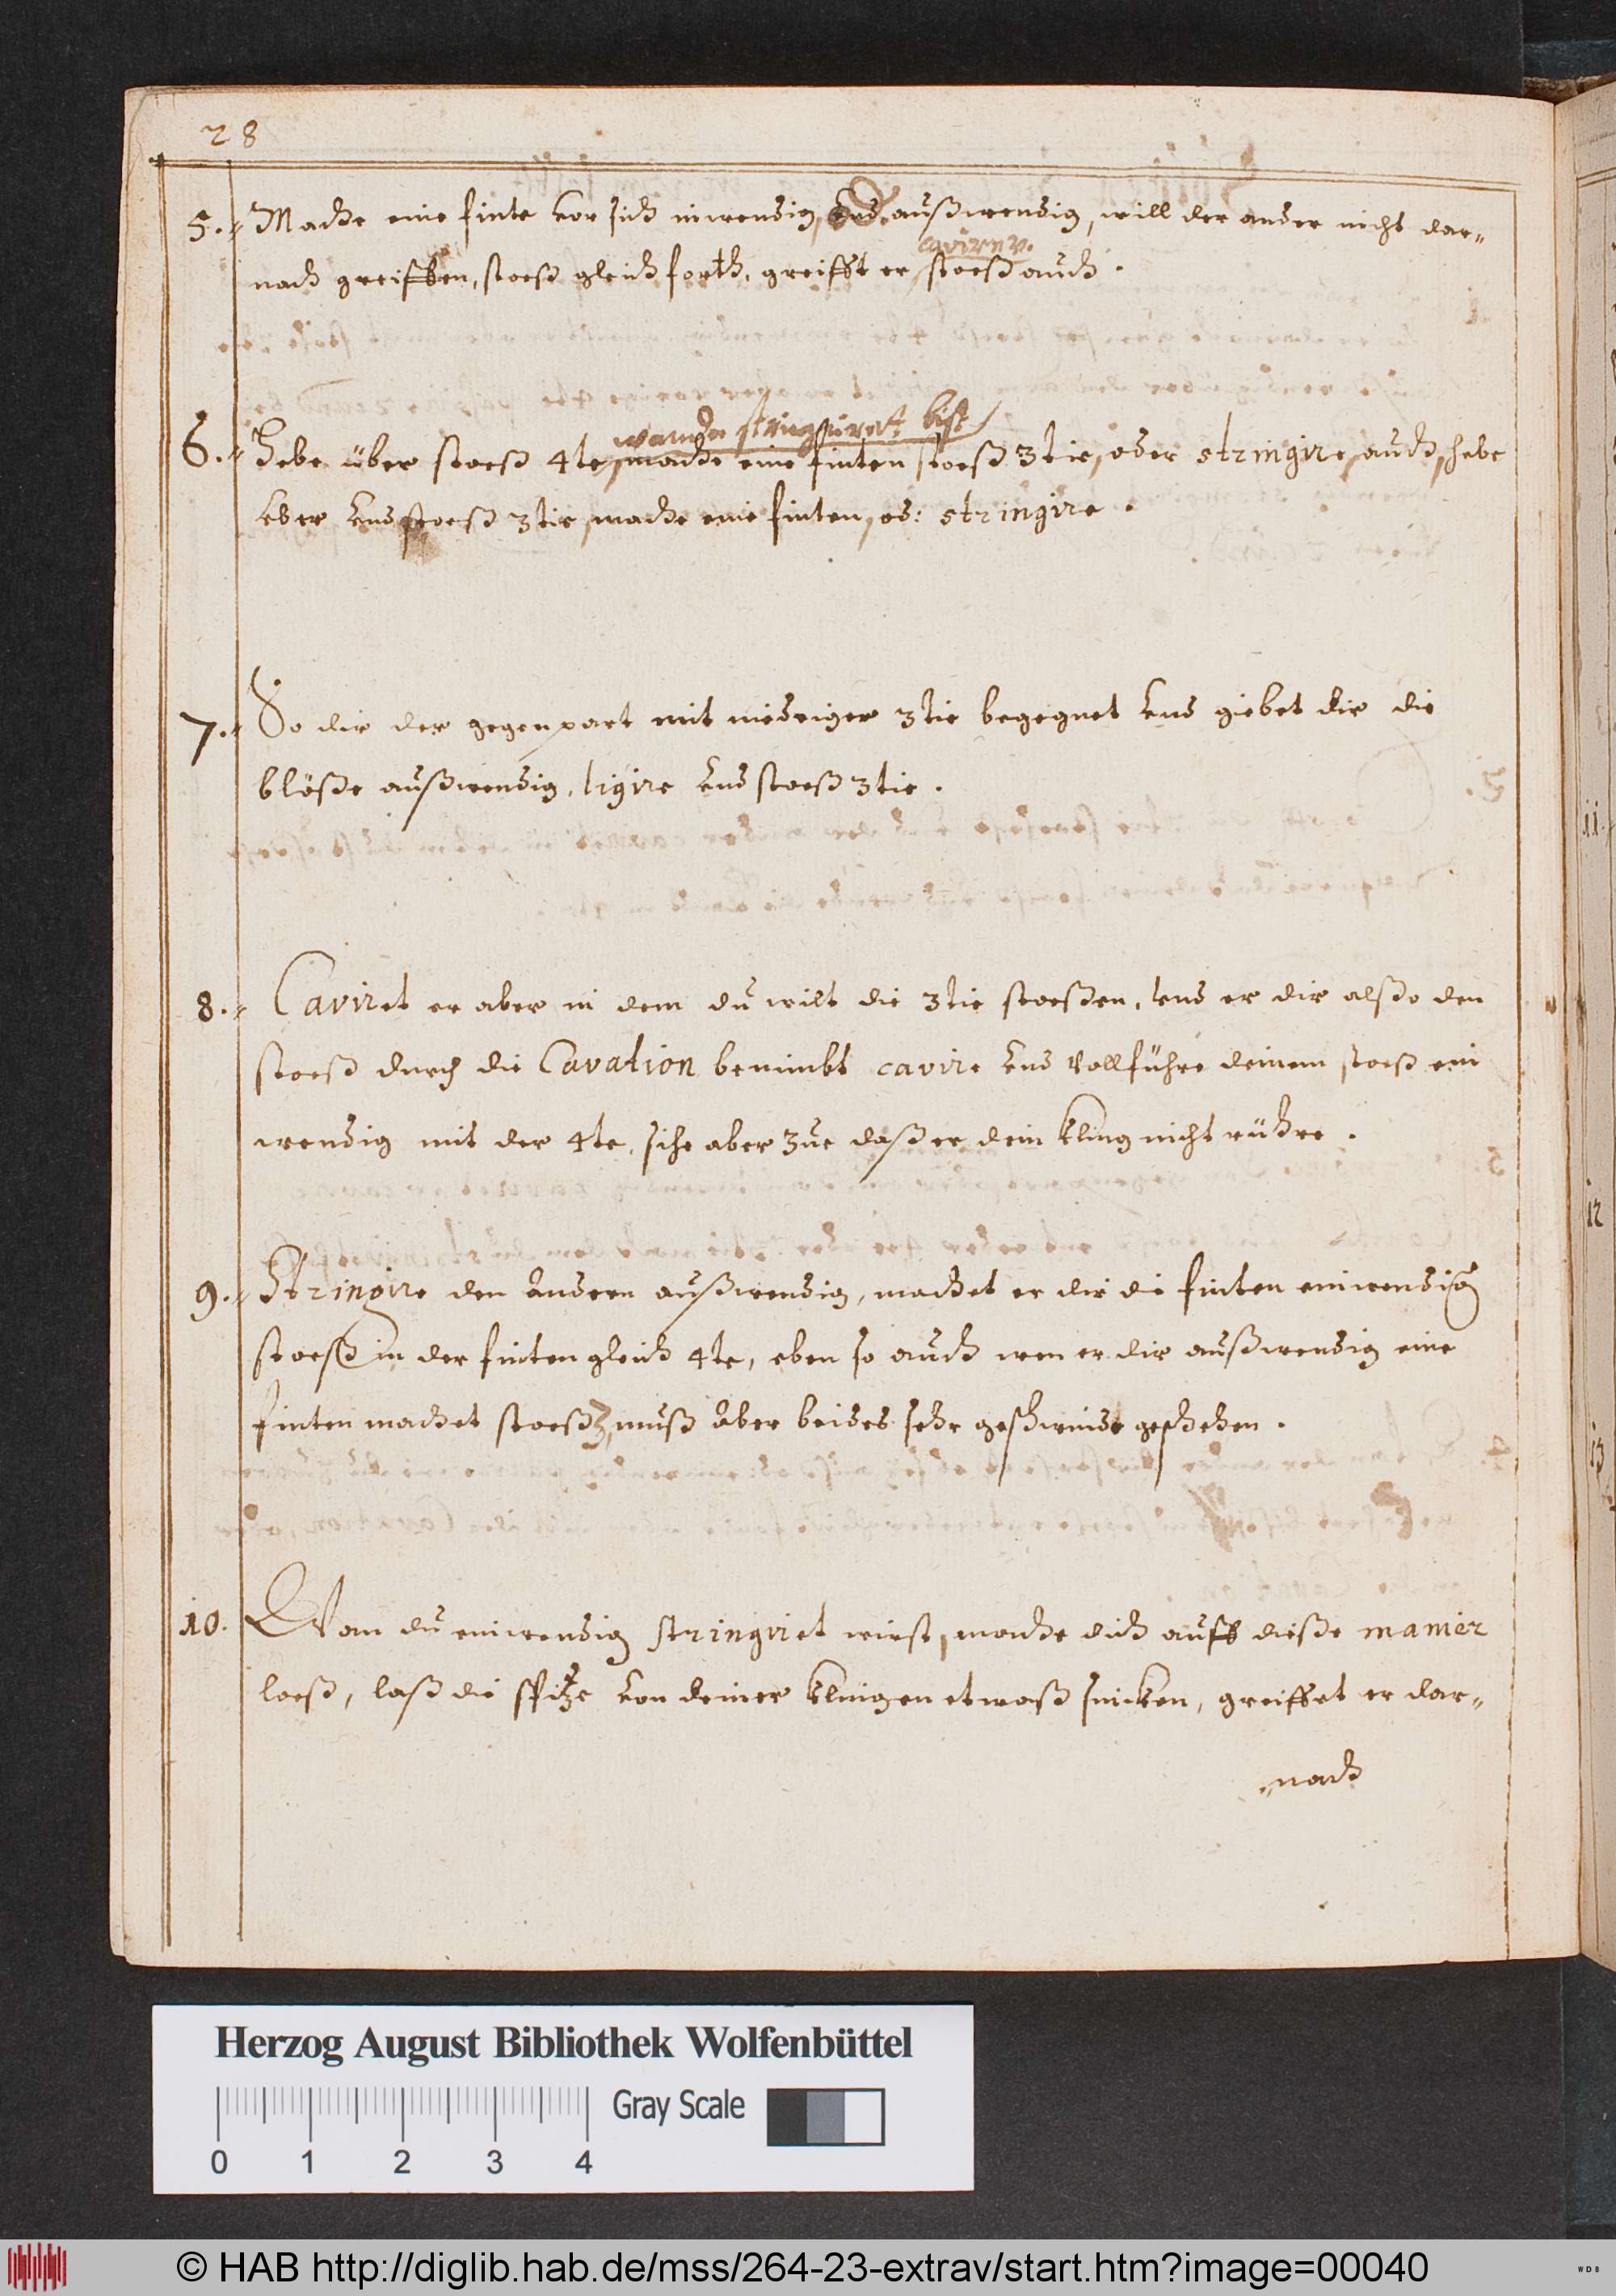 28
5. Mache eine finte vor sich inwendig, vnd außwendig, will der ander nicht dar-
caviren v.
nach greiffen, stoeß gleich forth, greifft er stoeß auch.
wan du stringiret bist
6. Hebe über stoeß 4te, mache eine finten stoeß 3tie, oder stringire, auch, hebe
vber vnd stoeß 3tie, mache eine finten, od: stringire.
7. So dir der gegenpart mit niedriger 3tie begegnet vnd giebet dir die
blöße außwendig, ligire vnd stoeß 3tie.
8. Caviret er aber in dem du wilt die 3tie stoeßen, vnd er dir alßo den
stoeß durch die Cavation benimbt cavire vnd vollführe deinem stoeß ein
wendig mit der 4te, sihe aber zue daß er dein kling nicht rühre.
9. Stringire den andern außwendig, machet er dir die finten einwendig
stoeß in der finten gleich 4te, eben so auch wen er dir außwendig eine
finten machet stoeß 3, muß aber beides sehr geschwinde geschehen.
10. Wan du einwendig stringiret wirst, mache dich auff dieße manier
loeß, laß die spitze von deiner klingen etwaß sincken, greiffet er dar-
nach
Herzog August Bibliothek Wolfenbüttel
Gray Scale
0 1 2 3 4
© HAB http://diglib.hab.de/mss/264-23-extrav/start.htm?image=00040